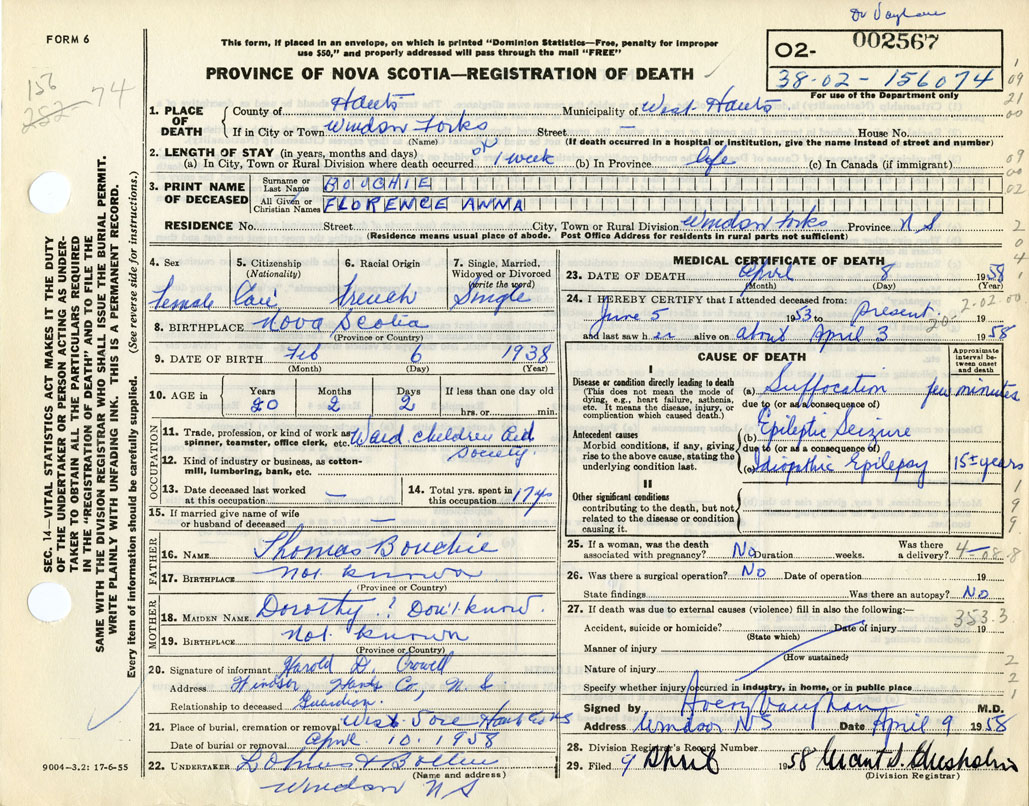 Dr Vaughan
FORM 6
This form, if placed in an envelope, on which is printed "Dominion Statistics—Free, penalty for improper
use $50," and properly addressed will pass through the mail "FREE"
PROVINCE OF NOVA SCOTIA—REGISTRATION OF DEATH
02- 002567
38-02-156074
For use of the Department only
156
252 74
SEC. 14—VITAL STATISTICS ACT MAKES IT THE DUTY
OF THE UNDERTAKER OR PERSON ACTING AS UNDER-
TAKER TO OBTAIN ALL THE PARTICULARS REQUIRED
IN THE "REGISTRATION OF DEATH" AND TO FILE THE
SAME WITH THE DIVISION REGISTRAR WHO SHALL ISSUE THE BURIAL PERMIT.
WRITE PLAINLY WITH UNFADING INK. THIS IS A PERMANENT RECORD.
Every item of information should be carefully supplied. (See reverse side for instructions.)
1. PLACE OF DEATH County of Hants Municipality of West Hants
If in City or Town Windsor Forks Street — House No.
(Name) (If death occurred in a hospital or institution, give the name instead of street and number)
2. LENGTH OF STAY (in years, months and days)
(a) In City, Town or Rural Division where death occurred 1 week (b) In Province life (c) In Canada (if immigrant)
3. PRINT NAME OF DECEASED Surname or Last Name BOUCHIE
All Given or Christian Names FLORENCE ANNA
RESIDENCE No. Street City, Town or Rural Division Windsor Forks Province N S
(Residence means usual place of abode. Post Office Address for residents in rural parts not sufficient)
4. Sex 5. Citizenship (Nationality) 6. Racial Origin 7. Single, Married, Widowed or Divorced (write the word)
Female Can French Single
8. BIRTHPLACE Nova Scotia
(Province or Country)
9. DATE OF BIRTH Feb 6 1938
(Month) (Day) (Year)
10. AGE in Years 20 Months 2 Days 2 If less than one day old
hrs. or min.
OCCUPATION
11. Trade, profession, or kind of work as spinner, teamster, office clerk, etc. Ward children Aid Society.
12. Kind of industry or business, as cotton-mill, lumbering, bank, etc.
13. Date deceased last worked at this occupation — 14. Total yrs. spent in this occupation 17 yrs
15. If married give name of wife or husband of deceased —
FATHER
16. NAME Thomas Bouchie
17. BIRTHPLACE not known
(Province or Country)
MOTHER
18. MAIDEN NAME Dorothy ? Don't know.
19. BIRTHPLACE not known
(Province or Country)
20. Signature of informant Harold D. Crowell
Address Windsor, Hants Co, N. S
Relationship to deceased Guardian.
21. Place of burial, cremation or removal West Gore Hants Co NS
Date of burial or removal April 10. 1958
22. UNDERTAKER
(Name and address)
Windsor N S
9004-3.2: 17-6-55
MEDICAL CERTIFICATE OF DEATH
23. DATE OF DEATH April 8 1958
(Month) (Day) (Year)
24. I HEREBY CERTIFY that I attended deceased from:
June 5 1953 to Present. 19
and last saw h er alive on about April 3 1958
CAUSE OF DEATH
Approximate interval between onset and death
I
Disease or condition directly leading to death
(This does not mean the mode of dying, e.g., heart failure, asthenia, etc. It means the disease, injury, or complication which caused death.)
(a) Suffocation few minutes
due to (or as a consequence of)
Antecedent causes
Morbid conditions, if any, giving rise to the above cause, stating the underlying condition last.
(b) Epileptic Seizure
due to (or as a consequence of)
(c) Idiopathic Epilepsy 15± years
II
Other significant conditions contributing to the death, but not related to the disease or condition causing it.
25. If a woman, was the death associated with pregnancy? No Duration weeks. Was there a delivery?
26. Was there a surgical operation? No Date of operation 19
State findings Was there an autopsy? No
27. If death was due to external causes (violence) fill in also the following:— 353.3
Accident, suicide or homicide? Date of injury 19
(State which)
Manner of injury
(How sustained)
Nature of injury
Specify whether injury occurred in industry, in home, or in public place
Signed by Avery Vaughan M.D.
Address Windsor NS Date April 9 1958
28. Division Registrar's Record Number
29. Filed 9 April 1958 Grant S. Chisholm
(Division Registrar)